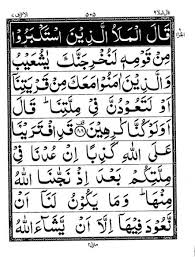 قال الملا٩
٥٠٥
الاعراف٧
قَالَ الْمَلَاُ الَّذِيْنَ اسْتَكْبَرُوْا
مِنْ قَوْمِهٖ لَنُخْرِجَنَّكَ يٰشُعَيْبُ
وَالَّذِيْنَ اٰمَنُوْا مَعَكَ مِنْ قَرْيَتِنَاۤ
اَوْ لَتَعُوْدُنَّ فِيْ مِلَّتِنَا ؕ قَالَ
اَوَلَوْ كُنَّا كٰرِهِيْنَ ﴿۸۸﴾ قَدِ افْتَرَيْنَا
عَلَى اللّٰهِ كَذِبًا اِنْ عُدْنَا فِيْ
مِلَّتِكُمْ بَعْدَ اِذْ نَجّٰىنَا اللّٰهُ
مِنْهَا ؕ وَمَا يَكُوْنُ لَنَاۤ اَنْ
نَّعُوْدَ فِيْهَاۤ اِلَّاۤ اَنْ يَّشَآءَ اللّٰهُ